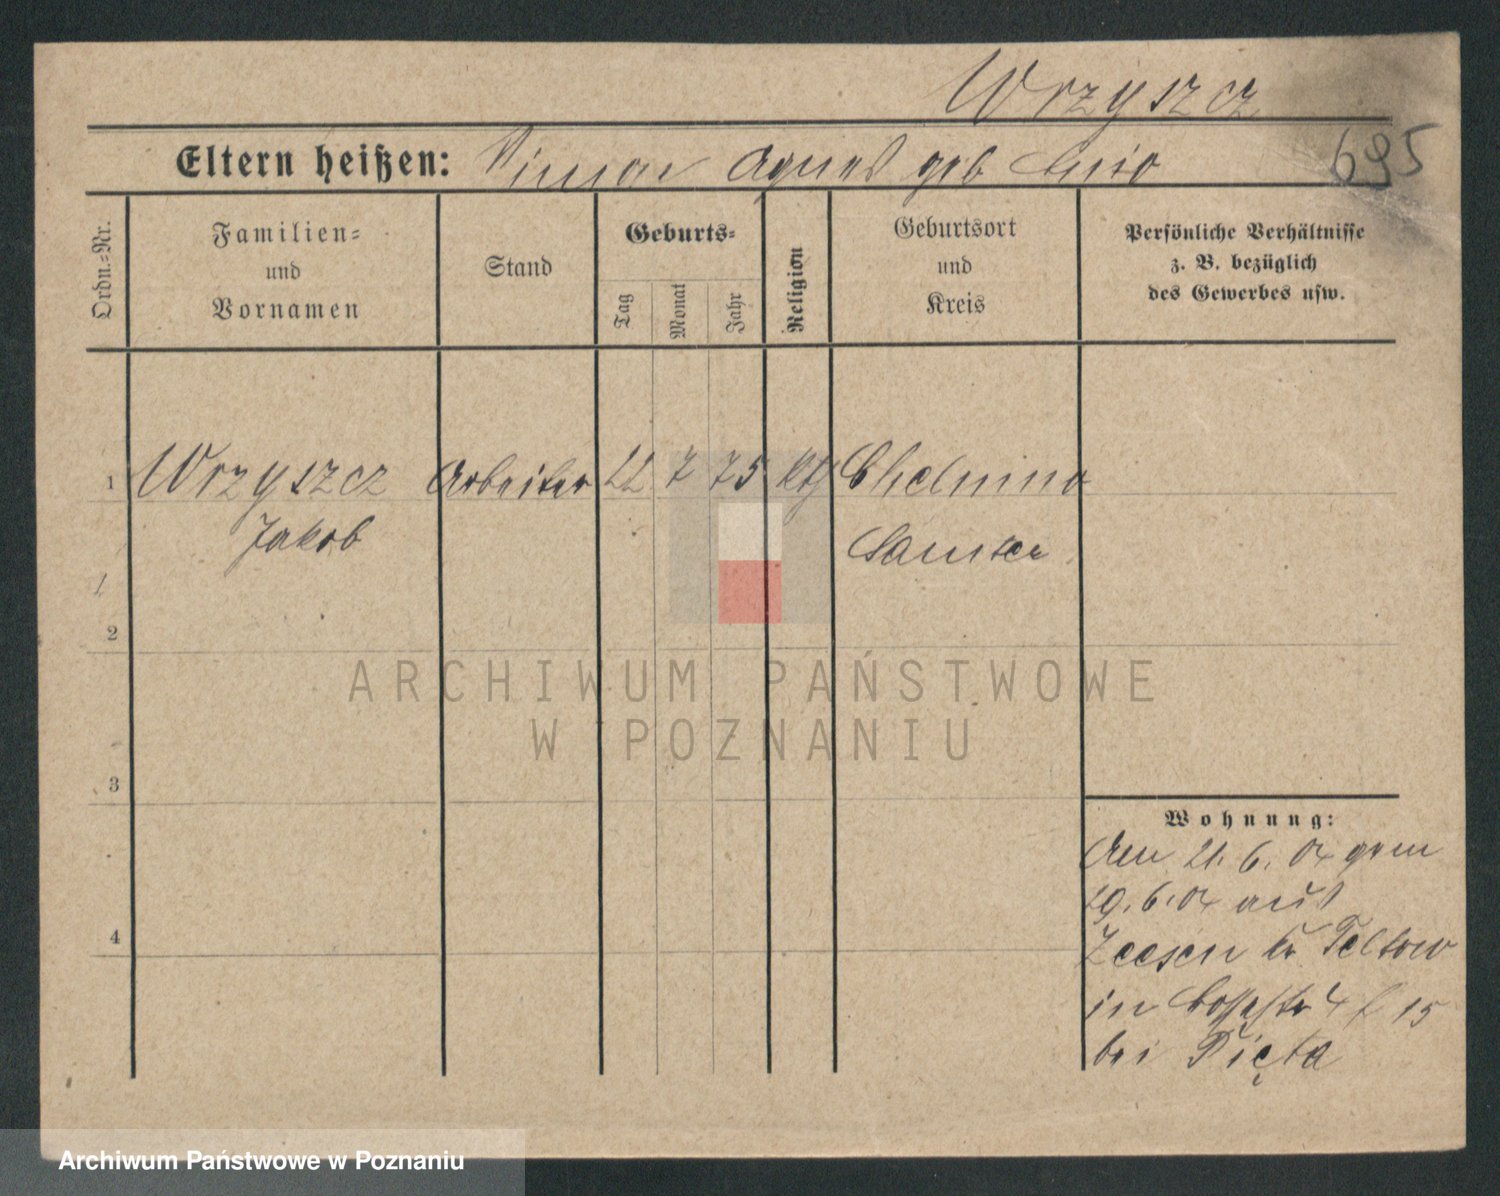 Wrzyszcz
695
Eltern heißen: Simon Agnes geb
Ordn.-Nr.
Familien-
und
Vornamen
Stand
Geburts-
Tag
Monat
Jahr
Religion
Geburtsort
und
Kreis
Persönliche Verhältnisse
z. B. bezüglich
des Gewerbes usw.
1 Wrzyszcz Arbeiter 22 7 75 kth Chelmino
Jakob Samter
2
3
4
Wohnung:
Am 21. 6. 04 gem
29. 6. 04 aus
Zeesen Kr Teltow
in 4 15
bei Pięta
ARCHIWUM PAŃSTWOWE
W POZNANIU
Archiwum Państwowe w Poznaniu